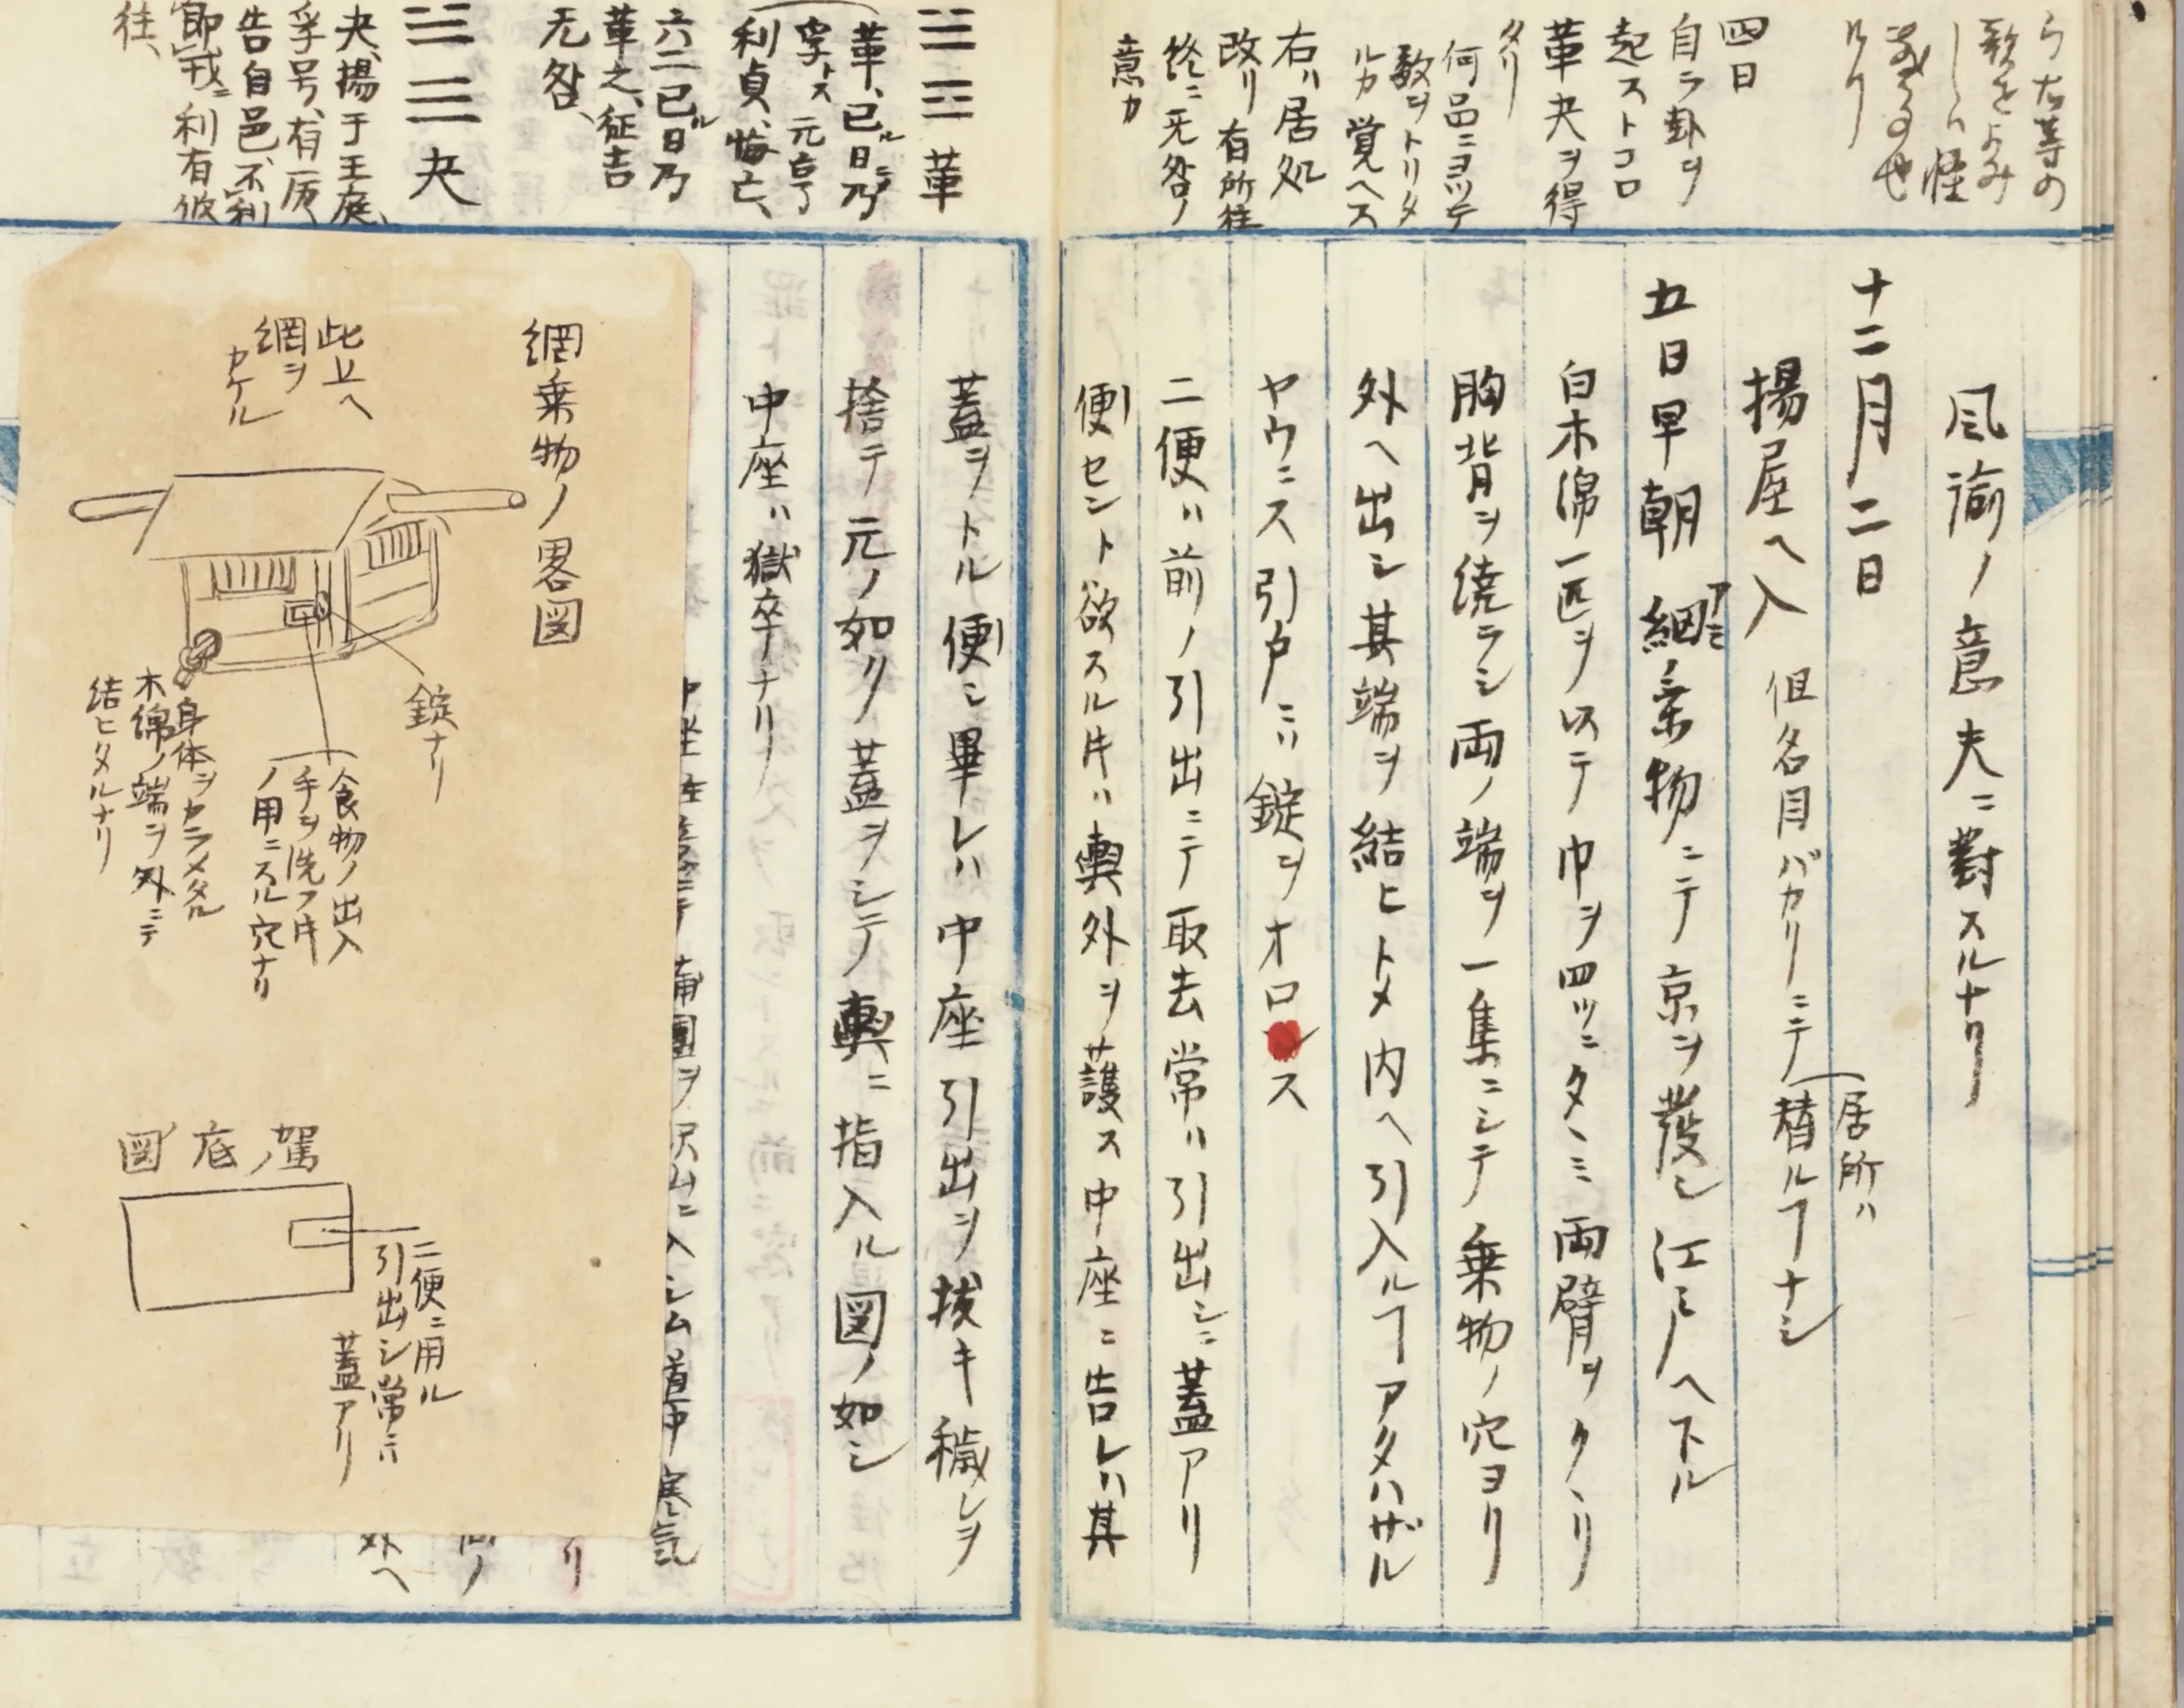 ら右等の
歌をよみ
しハ怪
なるの也
ルリ
四日
自ラ卦ヲ
起ストコロ
革夬ヲ得
タリ
何品ニヨツテ
数ヲトリタ
ルカ覚ヘス
右ハ居処
改リ有所往
終ニ无咎ノ
意カ
風諭ノ意夫ニ對スルナリ
十二月二日
揚屋ヘ入 但名目バカリニテ
居所ハ
替ルヿナシ
五日早朝網ノ乗物ニテ京ヲ發シ江戸ヘ下ル
アミ
白木綿一匹ヲ以テ巾ヲ四ツニタヽミ両臂ヲクヽリ
胸背ヲ繞ラシ両ノ端ヲ一集ニシテ乗物ノ穴ヨリ
外ヘ出シ其端ヲ結ヒトメ内ヘ引入ルヿアタハザル
ヤウニス引戸ニハ錠ヲオロス
二便ハ前ノ引出ニテ取去常ハ引出シニ蓋アリ
便セント欲スル片ハ輿外ヲ護ス中座ニ告レハ其
䷰革
革、已ル日ニシテ乃
孚トス元亨
利貞、悔亡、
六二已ル日乃
革之、征吉
无咎、
䷪夬
夬、揚于王庭、
孚号、有厲、
告自邑、不利
即戎ニ利有攸
往、
蓋ヲトル便シ畢レハ中座引出ヲ拔キ穢レヲ
捨テ元ノ如ク蓋ヲシテ輿ニ指入ル図ノ如シ
中座ハ獄卒ナリ
入シム道中寒気
リ
外ヘ
網乗物ノ畧図
此上ヘ
網ヲ
カケル
錠ナリ
食物ノ出入
手ヲ洗フ片
ノ用ニスル穴ナリ
身体ヲカラメタル
木綿ノ端ヲ外ニテ
結ヒタルナリ
駕ノ底図
二便ニ用ル
引出シ常ニハ
蓋アリ